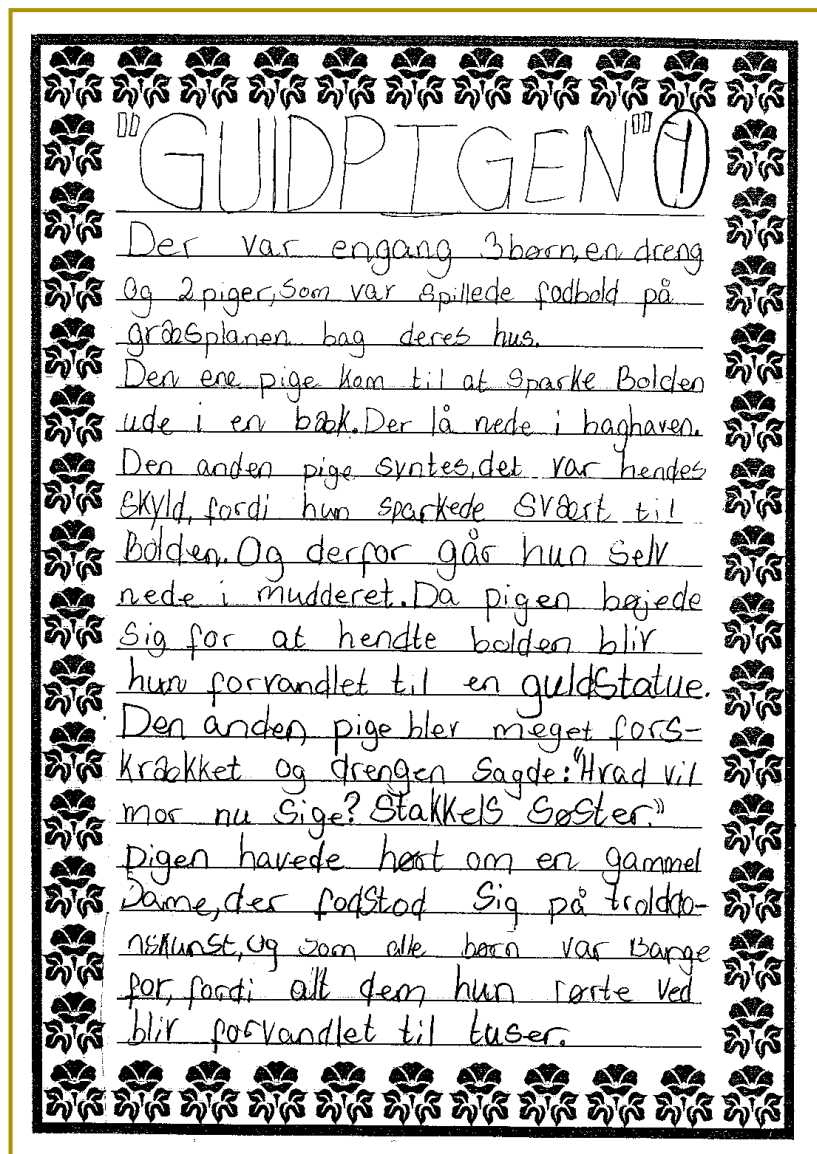 "GUIDPIGEN" 1
Der var engang 3 børn, en dreng
og 2 piger, som var spillede fodbold på
græsplanen bag deres hus.
Den ene pige kom til at sparke Bolden
ude i en bæk. Der lå nede i baghaven.
Den anden pige syntes, det var hendes
skyld, fordi hun sparkede svært til
Bolden. Og derfor går hun selv
nede i mudderet. Da pigen bøjede
sig for at hendte bolden blir
hun forvandlet til en guldstatue.
Den anden pige blev meget fors-
krækket og drengen sagde: "Hvad vil
mor nu sige? Stakkels søster."
pigen havede hørt om en gammel
Dame, der fodstod sig på trolddo-
nskunst, og som alle børn var Bange
for, fordi alt dem hun rørte ved
blir forvandlet til tuser.